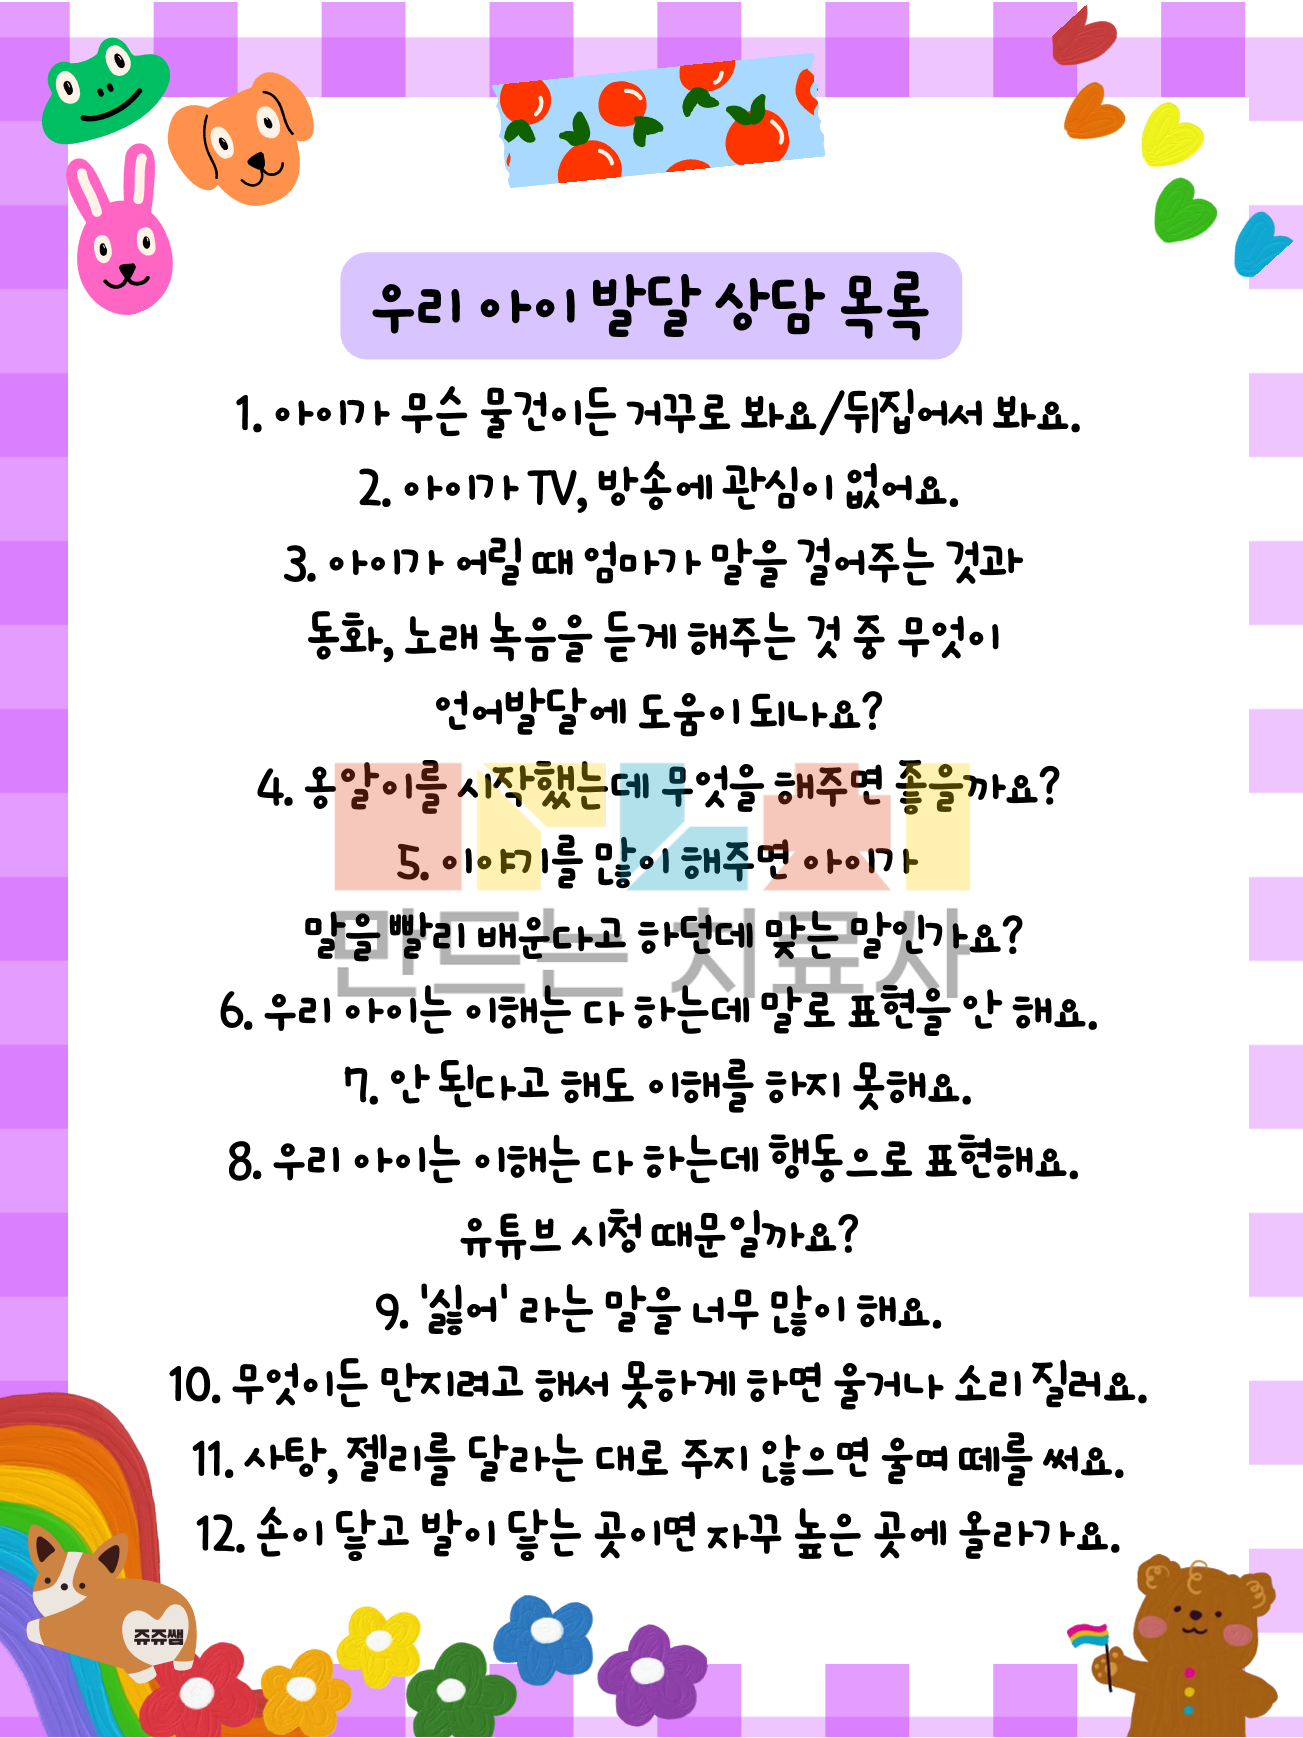 우리 아이 발달 상담 목록
1. 아이가 무슨 물건이든 거꾸로 봐요/뒤집어서 봐요.
2. 아이가 TV, 방송에 관심이 없어요.
3. 아이가 어릴 때 엄마가 말을 걸어주는 것과
동화, 노래 녹음을 듣게 해주는 것 중 무엇이
언어발달에 도움이 되나요?
4. 옹알이를 시작했는데 무엇을 해주면 좋을까요?
5. 이야기를 많이 해주면 아이가
말을 빨리 배운다고 하던데 맞는 말인가요?
만드는 치료사
6. 우리 아이는 이해는 다 하는데 말로 표현을 안 해요.
7. 안 된다고 해도 이해를 하지 못해요.
8. 우리 아이는 이해는 다 하는데 행동으로 표현해요.
유튜브 시청 때문일까요?
9. '싫어' 라는 말을 너무 많이 해요.
10. 무엇이든 만지려고 해서 못하게 하면 울거나 소리 질러요.
11. 사탕, 젤리를 달라는 대로 주지 않으면 울며 떼를 써요.
12. 손이 닿고 발이 닿는 곳이면 자꾸 높은 곳에 올라가요.
쥬쥬쌤